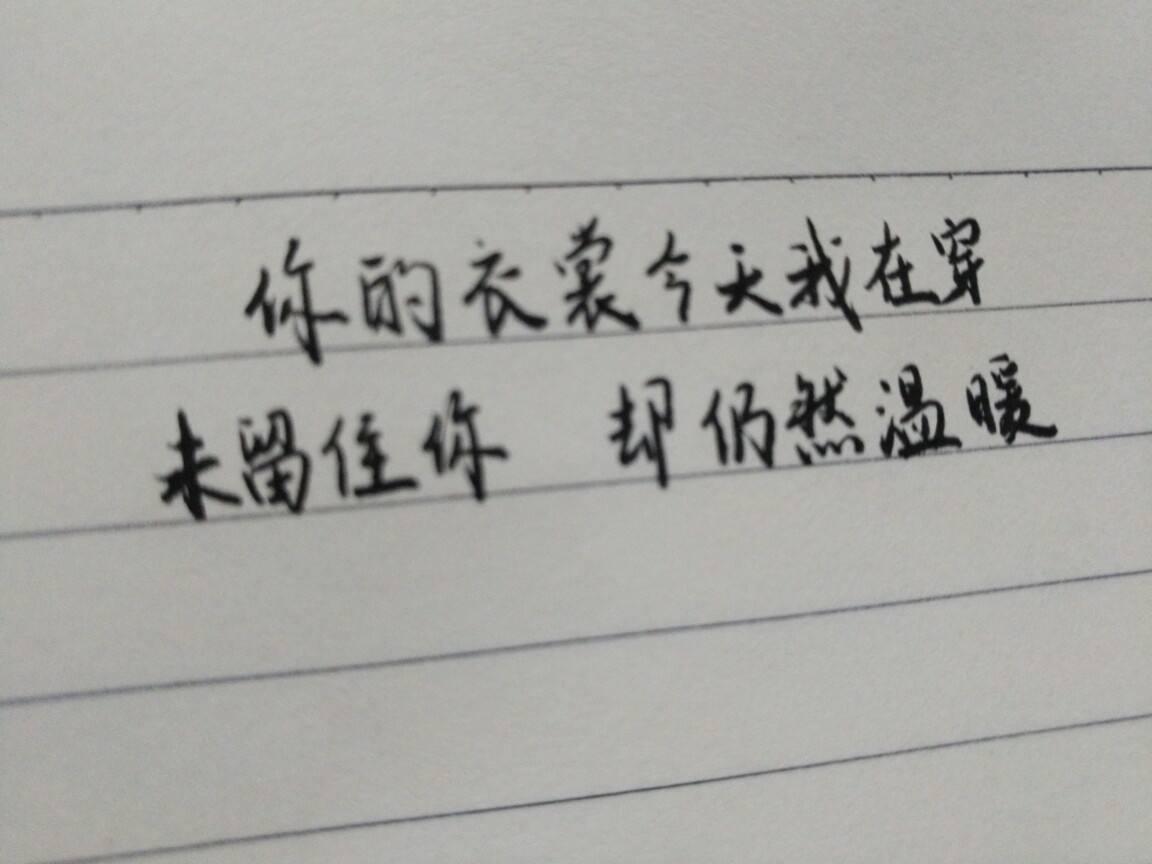 你的衣裳今天我在穿
未留住你 却仍然温暖